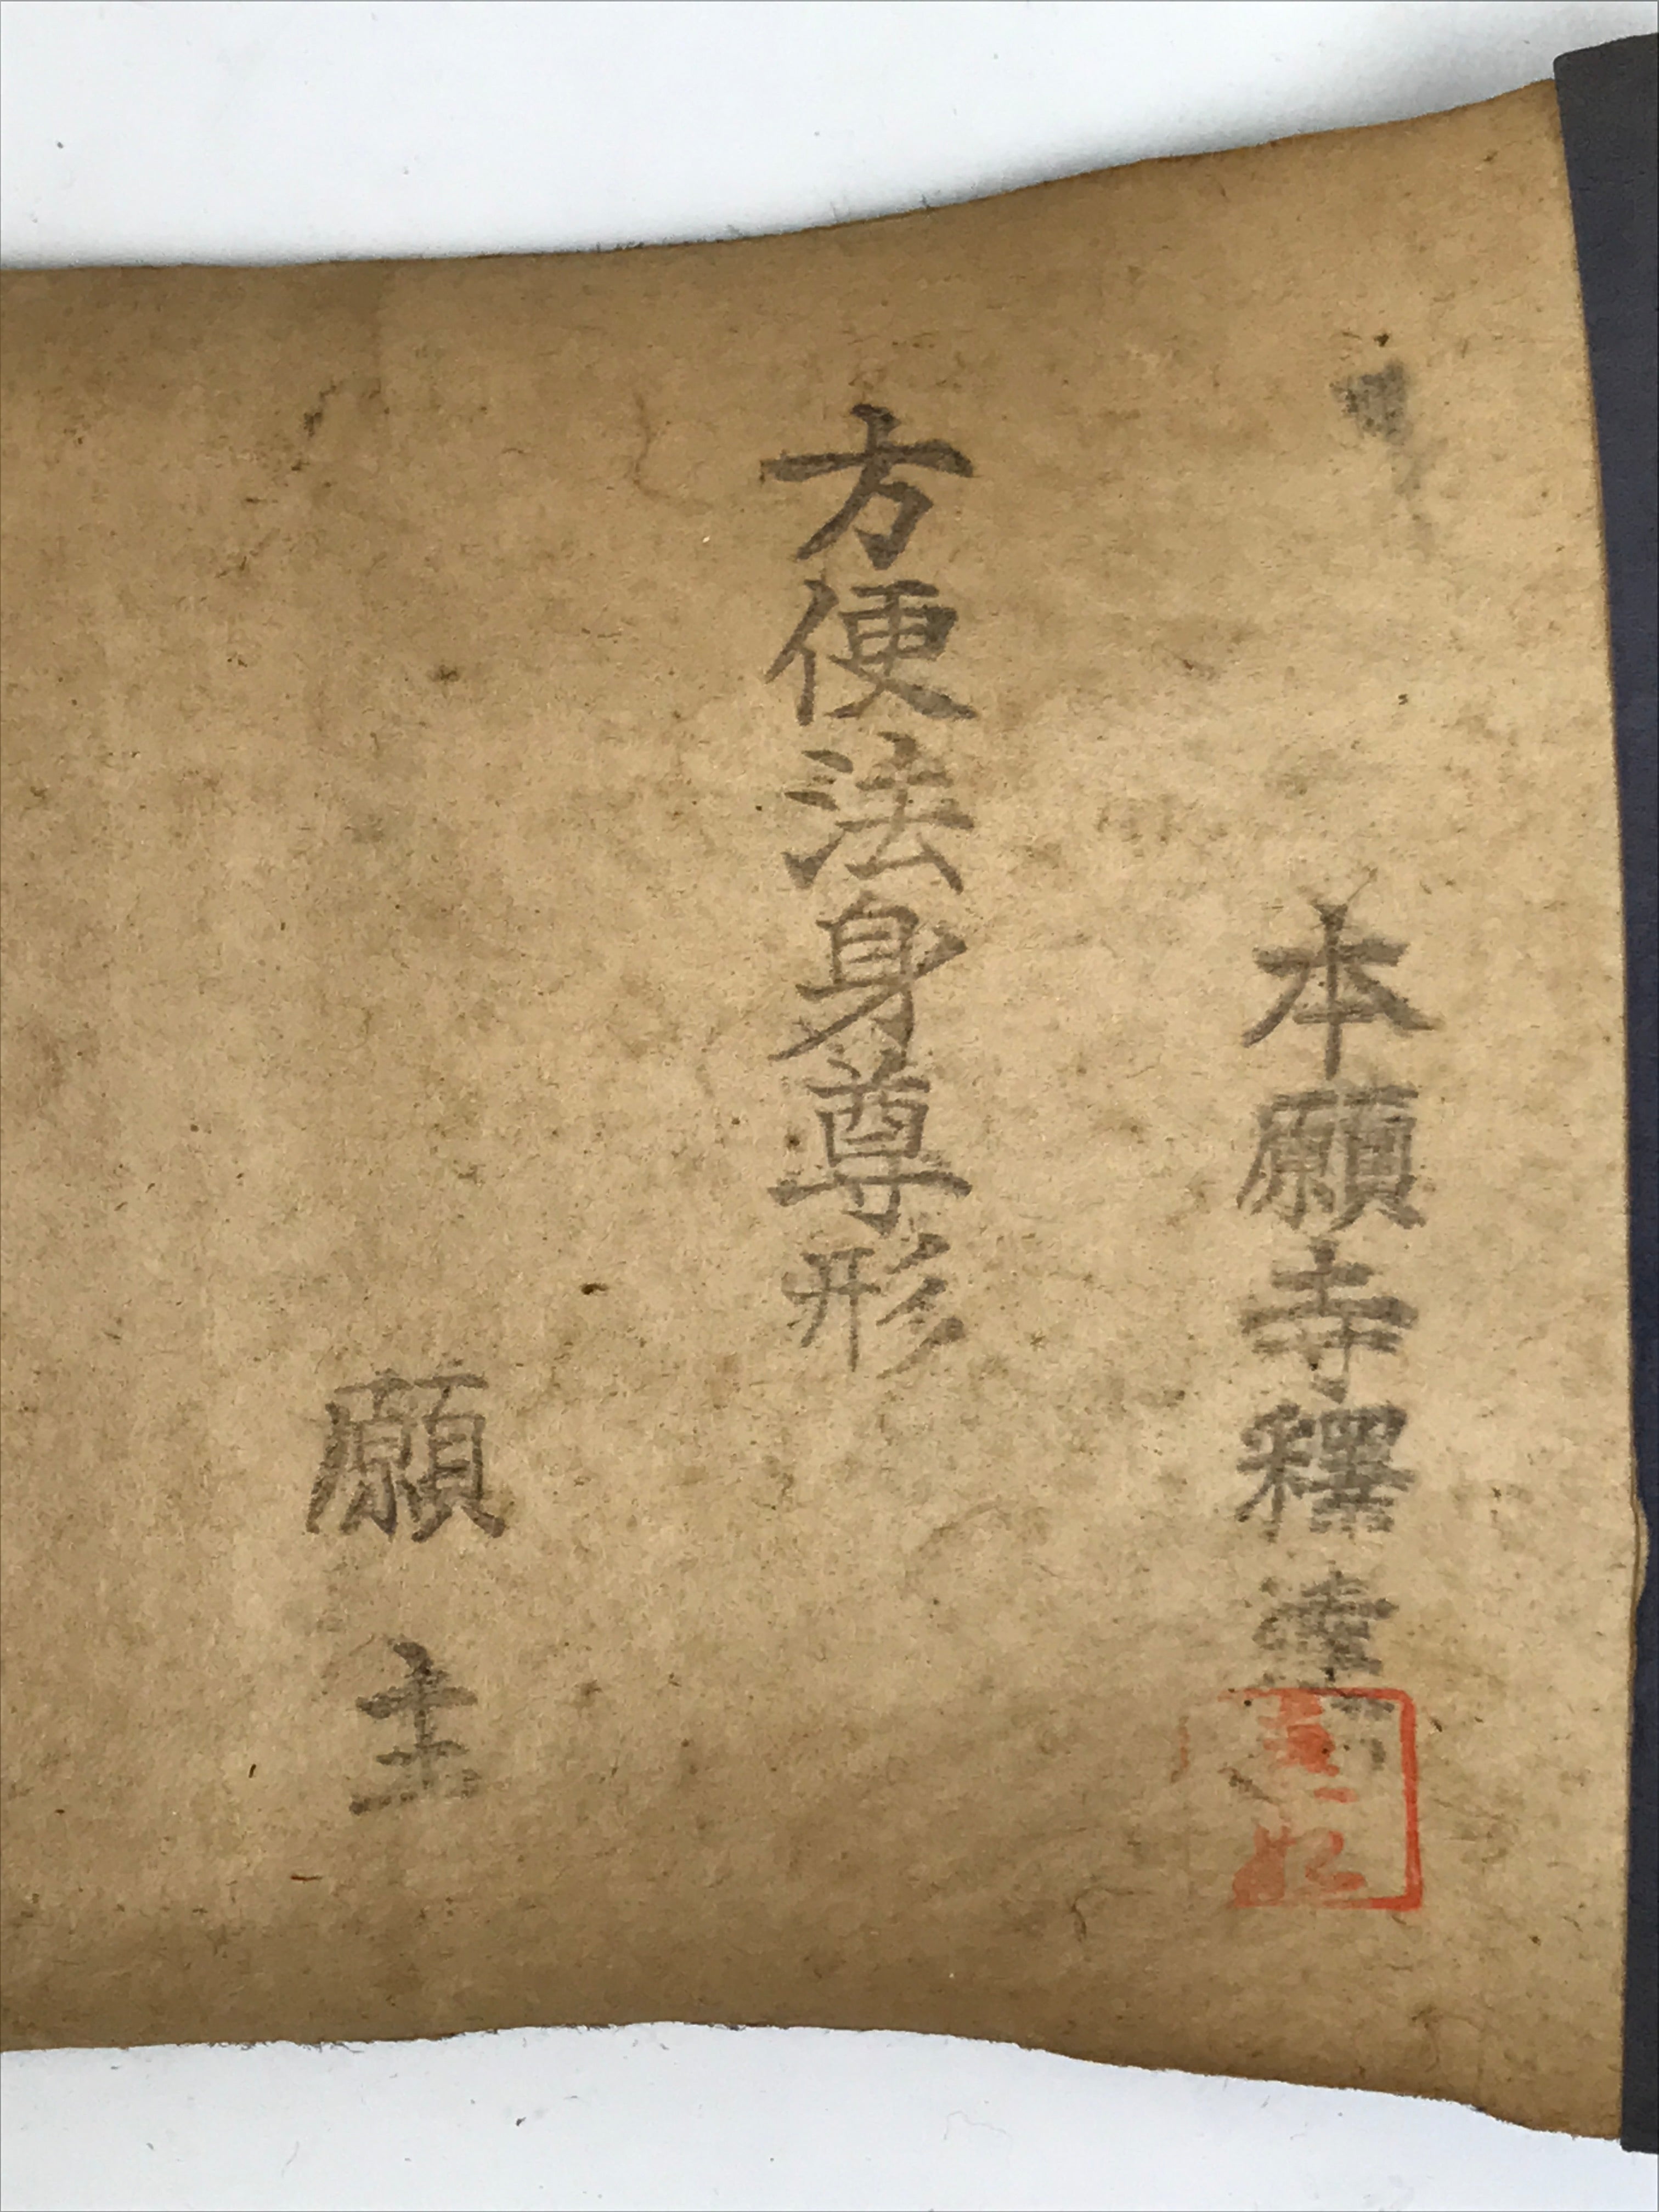 本願寺釋
方便法身尊形
願主